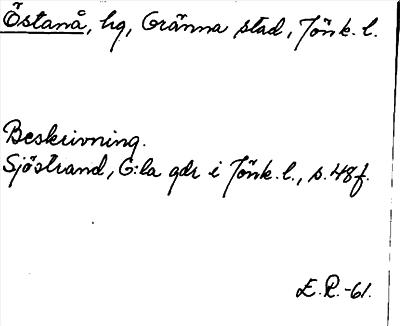 Östanå, hg, Gränna stad, Jönk. l.
Beskrivning.
Sjöstrand, G:la gdr i Jönk. l., s. 48f.
E.P.-61.